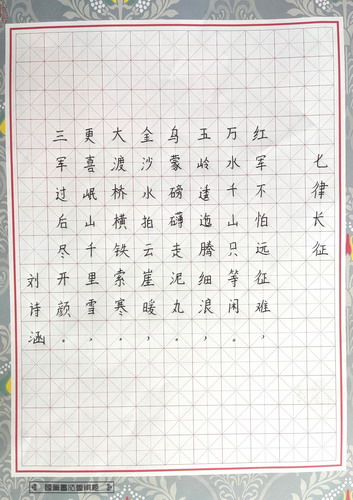 七律长征
红军不怕远征难，
万水千山只等闲。
五岭逶迤腾细浪，
乌蒙磅礴走泥丸。
金沙水拍云崖暖，
大渡桥横铁索寒。
更喜岷山千里雪，
三军过后尽开颜。
刘诗涵